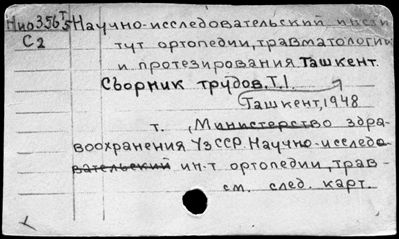 Нио356Т5 Научно-исследовательский инсти
С2 тут ортопедии, травматологии
и протезирования Ташкент.
Сборник трудов. Т.I.
Ташкент, 1948
т. , Министерство здра-
воохранения УзССР. Научно-исследо
вательский ин-т ортопедии, трав-
см. след. карт.